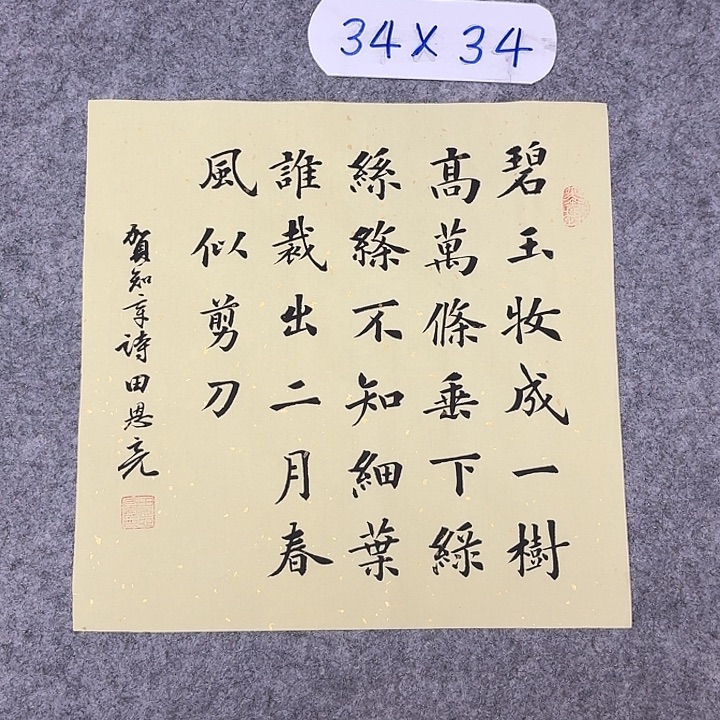 34 X 34
碧玉妝成一樹
高萬條垂下綠
絲絛不知細葉
誰裁出二月春
風似剪刀
賀知章詩田恩亮